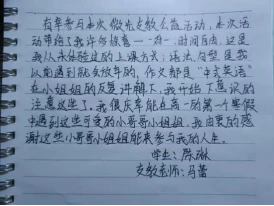 有幸参与本次微光支教公益活动，本次活
动带给了我许多惊喜——一对一，时间自由，这是
我从未体验过的上课方式；语法、句型是我
以前遇到就会放弃的，作文都是“中式英语”
在小姐姐的反复讲解下，我开始下意识的
注意这些了。我很庆幸能在高一的第一个寒假
中遇到这些可爱的小哥哥小姐姐，我由衷的感
谢这些小哥哥小姐姐能来参与我的人生。
学生：陈琳
支教老师：马蕾